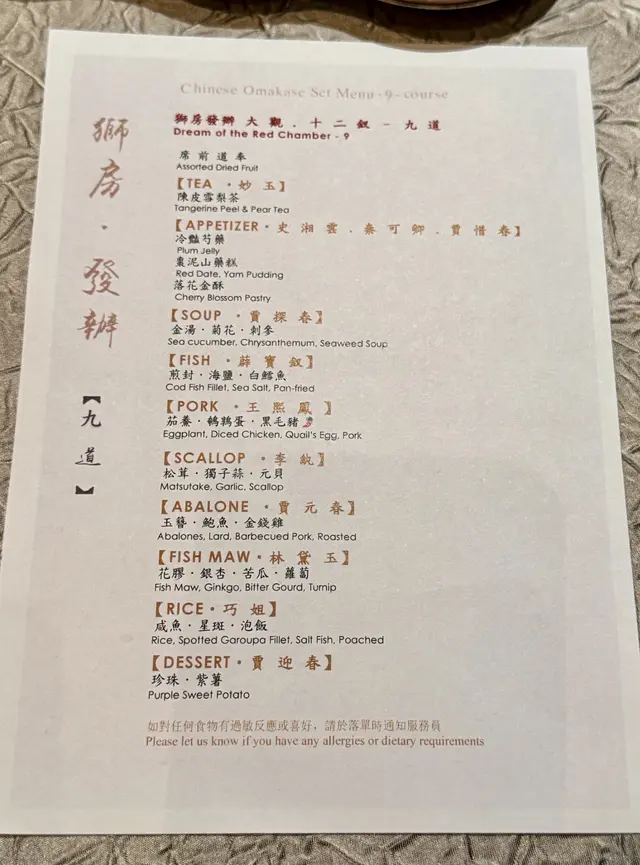 Chinese Omakase Set Menu · 9 - course
獅房 · 發辦
【九道】
獅房發辦 大 觀 . 十 二 釵 - 九 道
Dream of the Red Chamber - 9
席 前 道 奉
Assorted Dried Fruit
【TEA · 妙 玉】
陳皮雪梨茶
Tangerine Peel & Pear Tea
【APPETIZER · 史 湘 雲 . 秦 可 卿 . 賈 惜 春】
冷豔芍藥
Plum Jelly
棗泥山藥糕
Red Date, Yam Pudding
落花金酥
Cherry Blossom Pastry
【SOUP · 賈 探 春】
金湯 · 菊花 · 刺參
Sea cucumber, Chrysanthemum, Seaweed Soup
【FISH · 薛 寶 釵】
煎封 · 海鹽 · 白鱈魚
Cod Fish Fillet, Sea Salt, Pan-fried
【PORK · 王 熙 鳳 】
茄養 · 鵪鶉蛋 · 黑毛豬
Eggplant, Diced Chicken, Quail's Egg, Pork
【SCALLOP · 李 紈】
松茸 · 獨子蒜 · 元貝
Matsutake, Garlic, Scallop
【ABALONE · 賈 元 春】
玉簪 · 鮑魚 · 金錢雞
Abalones, Lard, Barbecued Pork, Roasted
【FISH MAW · 林 黛 玉】
花膠 · 銀杏 · 苦瓜 · 蘿蔔
Fish Maw, Ginkgo, Bitter Gourd, Turnip
【RICE · 巧 姐】
咸魚 · 星斑 · 泡飯
Rice, Spotted Garoupa Fillet, Salt Fish, Poached
【DESSERT · 賈 迎 春】
珍珠 · 紫薯
Purple Sweet Potato
如對任何食物有過敏反應或喜好，請於落單時通知服務員
Please let us know if you have any allergies or dietary requirements